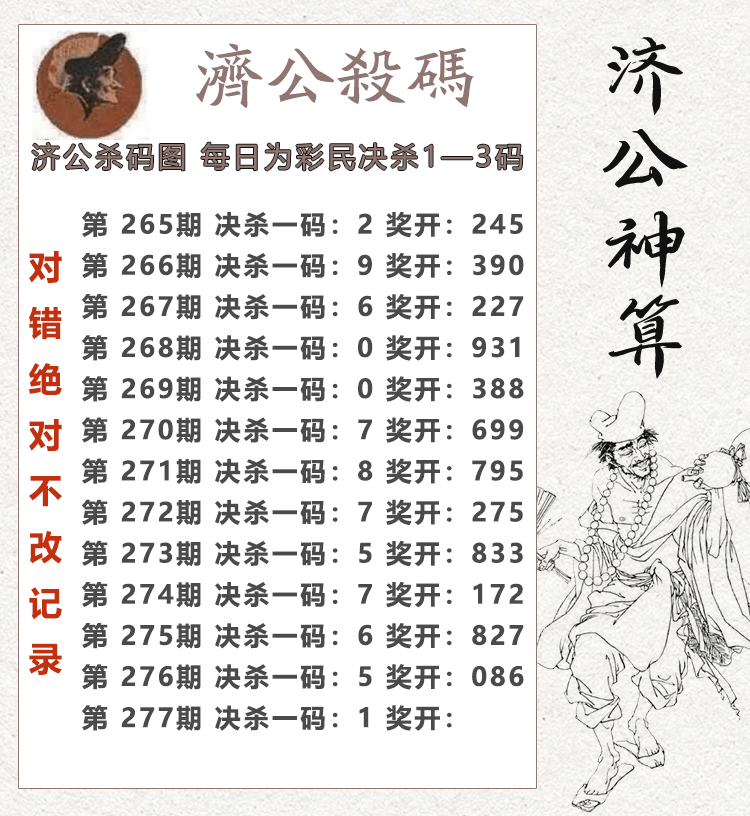 濟公殺碼
济公杀码图 每日为彩民决杀1—3码
第 265期 决杀一码：2 奖开：245
第 266期 决杀一码：9 奖开：390
第 267期 决杀一码：6 奖开：227
第 268期 决杀一码：0 奖开：931
第 269期 决杀一码：0 奖开：388
第 270期 决杀一码：7 奖开：699
第 271期 决杀一码：8 奖开：795
第 272期 决杀一码：7 奖开：275
第 273期 决杀一码：5 奖开：833
第 274期 决杀一码：7 奖开：172
第 275期 决杀一码：6 奖开：827
第 276期 决杀一码：5 奖开：086
第 277期 决杀一码：1 奖开：
对错绝对不改记录
济公神算